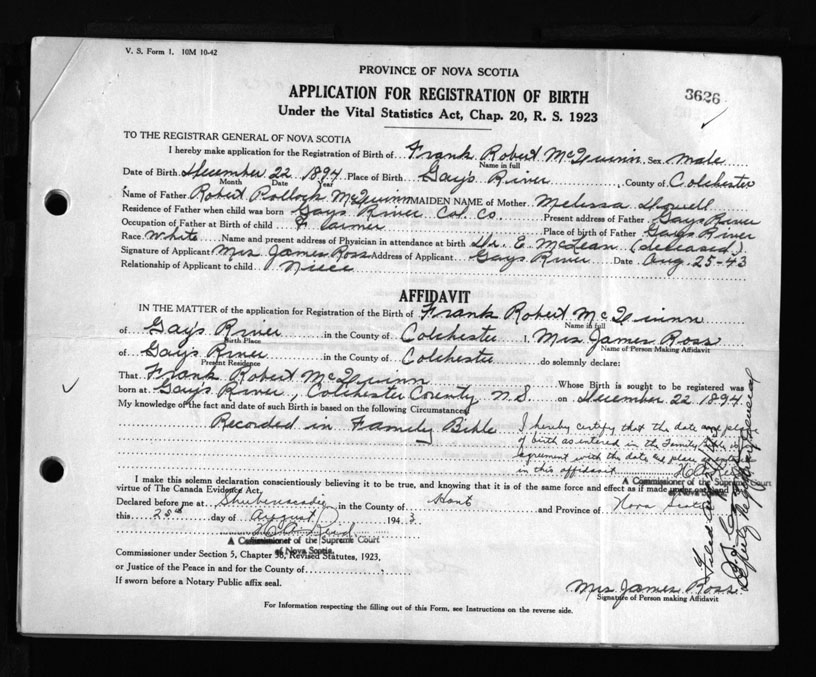 V. S. Form 1. 10M 10-42
PROVINCE OF NOVA SCOTIA
APPLICATION FOR REGISTRATION OF BIRTH
3626
Under the Vital Statistics Act, Chap. 20, R. S. 1923
TO THE REGISTRAR GENERAL OF NOVA SCOTIA
I hereby make application for the Registration of Birth of Frank Robert McQuinn Sex Male
Name in full
Date of Birth December 22 1894 Place of Birth Gay's River County of Colchester
Month Date Year
Name of Father Robert Pollock McQuinn MAIDEN NAME of Mother Melissa
Residence of Father when child was born Gays River Col. Co. Present address of Father Gays River
Occupation of Father at Birth of child Farmer Place of birth of Father Gays River
Race White Name and present address of Physician in attendance at birth Dr. E. McLean (deceased)
Signature of Applicant Mrs James Ross Address of Applicant Gays River Date Aug. 25-43
Relationship of Applicant to child Niece
AFFIDAVIT
IN THE MATTER of the application for Registration of the Birth of Frank Robert McQuinn
Name in full
of Gays River in the County of Colchester I, Mrs James Ross
Birth Place Name of Person Making Affidavit
of Gays River in the County of Colchester do solemnly declare:
Present Residence
That Frank Robert McQuinn Whose Birth is sought to be registered was
born at Gay's River, Colchester County N.S. on December 22 1894
My knowledge of the fact and date of such Birth is based on the following Circumstances
Recorded in Family Bible
I hereby certify that the date and place
of birth as entered in the Family Bible
agreement with the date & place
in this affidavit
A Commissioner of the Supreme Court
I make this solemn declaration conscientiously believing it to be true, and knowing that it is of the same force and effect as if made under oath
virtue of The Canada Evidence Act.
Declared before me at Shubenacadie in the County of Hants and Province of Nova Scotia
this 25th day of August 1943
A Commissioner of the Supreme Court
of Nova Scotia
Commissioner under Section 5, Chapter 36, Revised Statutes, 1923,
or Justice of the Peace in and for the County of
If sworn before a Notary Public affix seal.
Mrs James Ross
Signature of Person making Affidavit
For Information respecting the filling out of this Form, see Instructions on the reverse side.
Deputy Registrar General